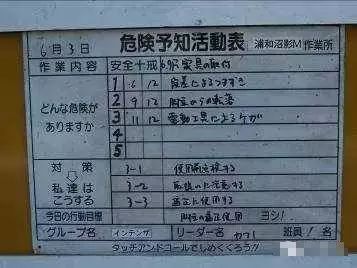 6月3日 危険予知活動表 浦和沼影M 作業所
作業内容 安全十戒 家具の取付
どんな危険がありますか
1 6 12 段差によるつまずき
2 9 12 脚立からの転落
3 11 12 電動工具によるケガ
4
5
対策
私達はこうする
3-1 使用前点検する
3-2 足元に注意する
3-3 正に使用する
今日の行動目標 脚立の 正使用 ヨシ!
グループ名 インテンザ リーダー名 班員 名
タッチアンドコールでしめくくろう!!